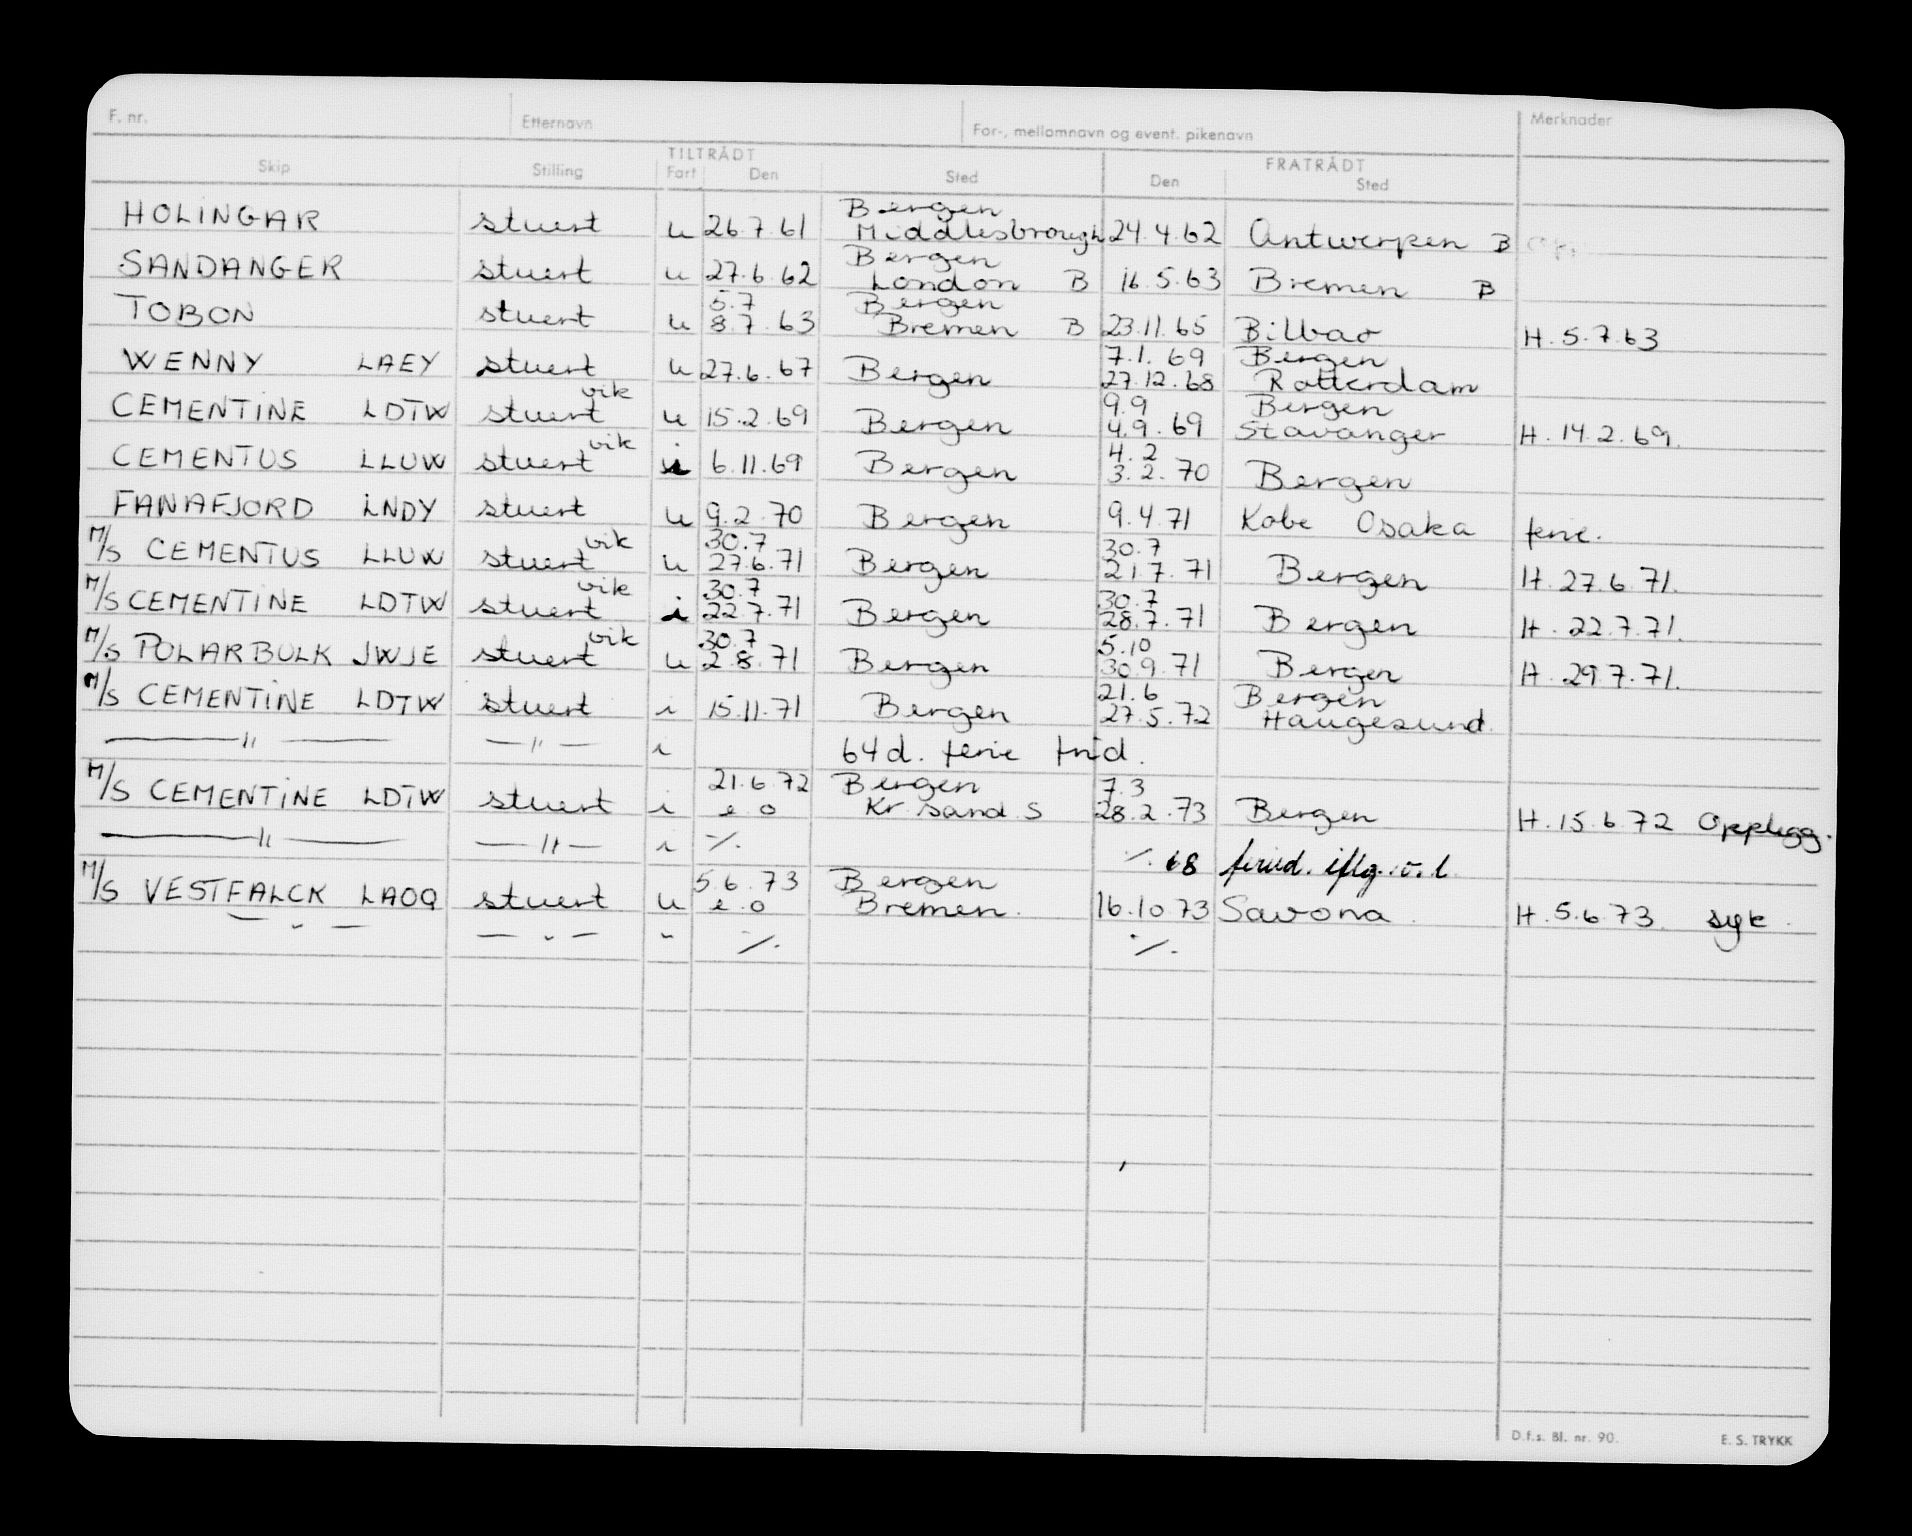 F. nr. Etternavn For-, mellomnavn og event. pikenavn Merknader
TILTRÅDT FRATRÅDT
Skip Stilling Fart Den Sted Den Sted
Bergen
HOLINGAR stuert u 26.7.61 Middlesbrough 24.4.62 Antwerpen B
Bergen
SANDANGER stuert u 27.6.62 London B 16.5.63 Bremen B
5.7 Bergen
TOBON stuert u 8.7.63 Bremen B 23.11.65 Bilbao H. 5.7.63
7.1.69 Bergen
WENNY LAEY stuert u 27.6.67 Bergen 27.12.68 Rotterdam
vik 9.9 Bergen
CEMENTINE LDTW stuert u 15.2.69 Bergen 4.9.69 Stavanger H. 14.2.69.
vik 4.2
CEMENTUS LLUW stuert i 6.11.69 Bergen 3.2.70 Bergen
FANAFJORD LNDY stuert u 9.2.70 Bergen 9.4.71 Kobe Osaka ferie.
vik 30.7 30.7
M/S CEMENTUS LLUW stuert u 27.6.71 Bergen 21.7.71 Bergen H. 27.6.71.
vik 30.7 30.7
M/S CEMENTINE LDTW stuert i 22.7.71 Bergen 28.7.71 Bergen H. 22.7.71.
vik 30.7 5.10
M/S POLARBULK JWJE stuert u 2.8.71 Bergen 30.9.71 Bergen H. 29.7.71.
21.6 Bergen
M/S CEMENTINE LDTW stuert i 15.11.71 Bergen 27.5.72 Haugesund.
— " — — " — i 64 d. ferie frid.
21.6.72 Bergen 7.3
M/S CEMENTINE LDTW stuert i e.o Kr.sand S 28.2.73 Bergen H. 15.6.72 Opplegg.
— " — — " — i ·/. ·/. 68 feried. iflg.
5.6.73 Bergen
M/S VESTFALCK LAOQ stuert u e.o Bremen. 16.10.73 Savona. H. 5.6.73. syk.
— " — — " — " ·/. ·/.
D.f.s. Bl. nr. 90. E. S. TRYKK